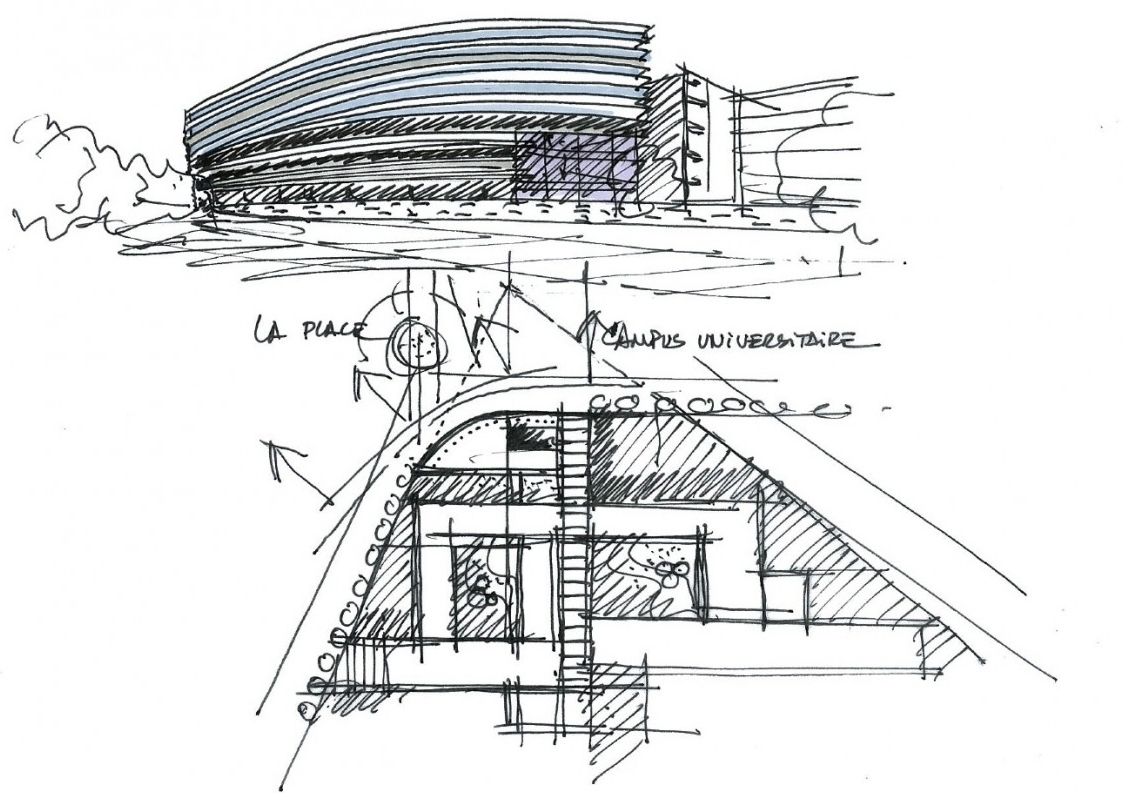 LA PLACE
CAMPUS UNIVERSITAIRE